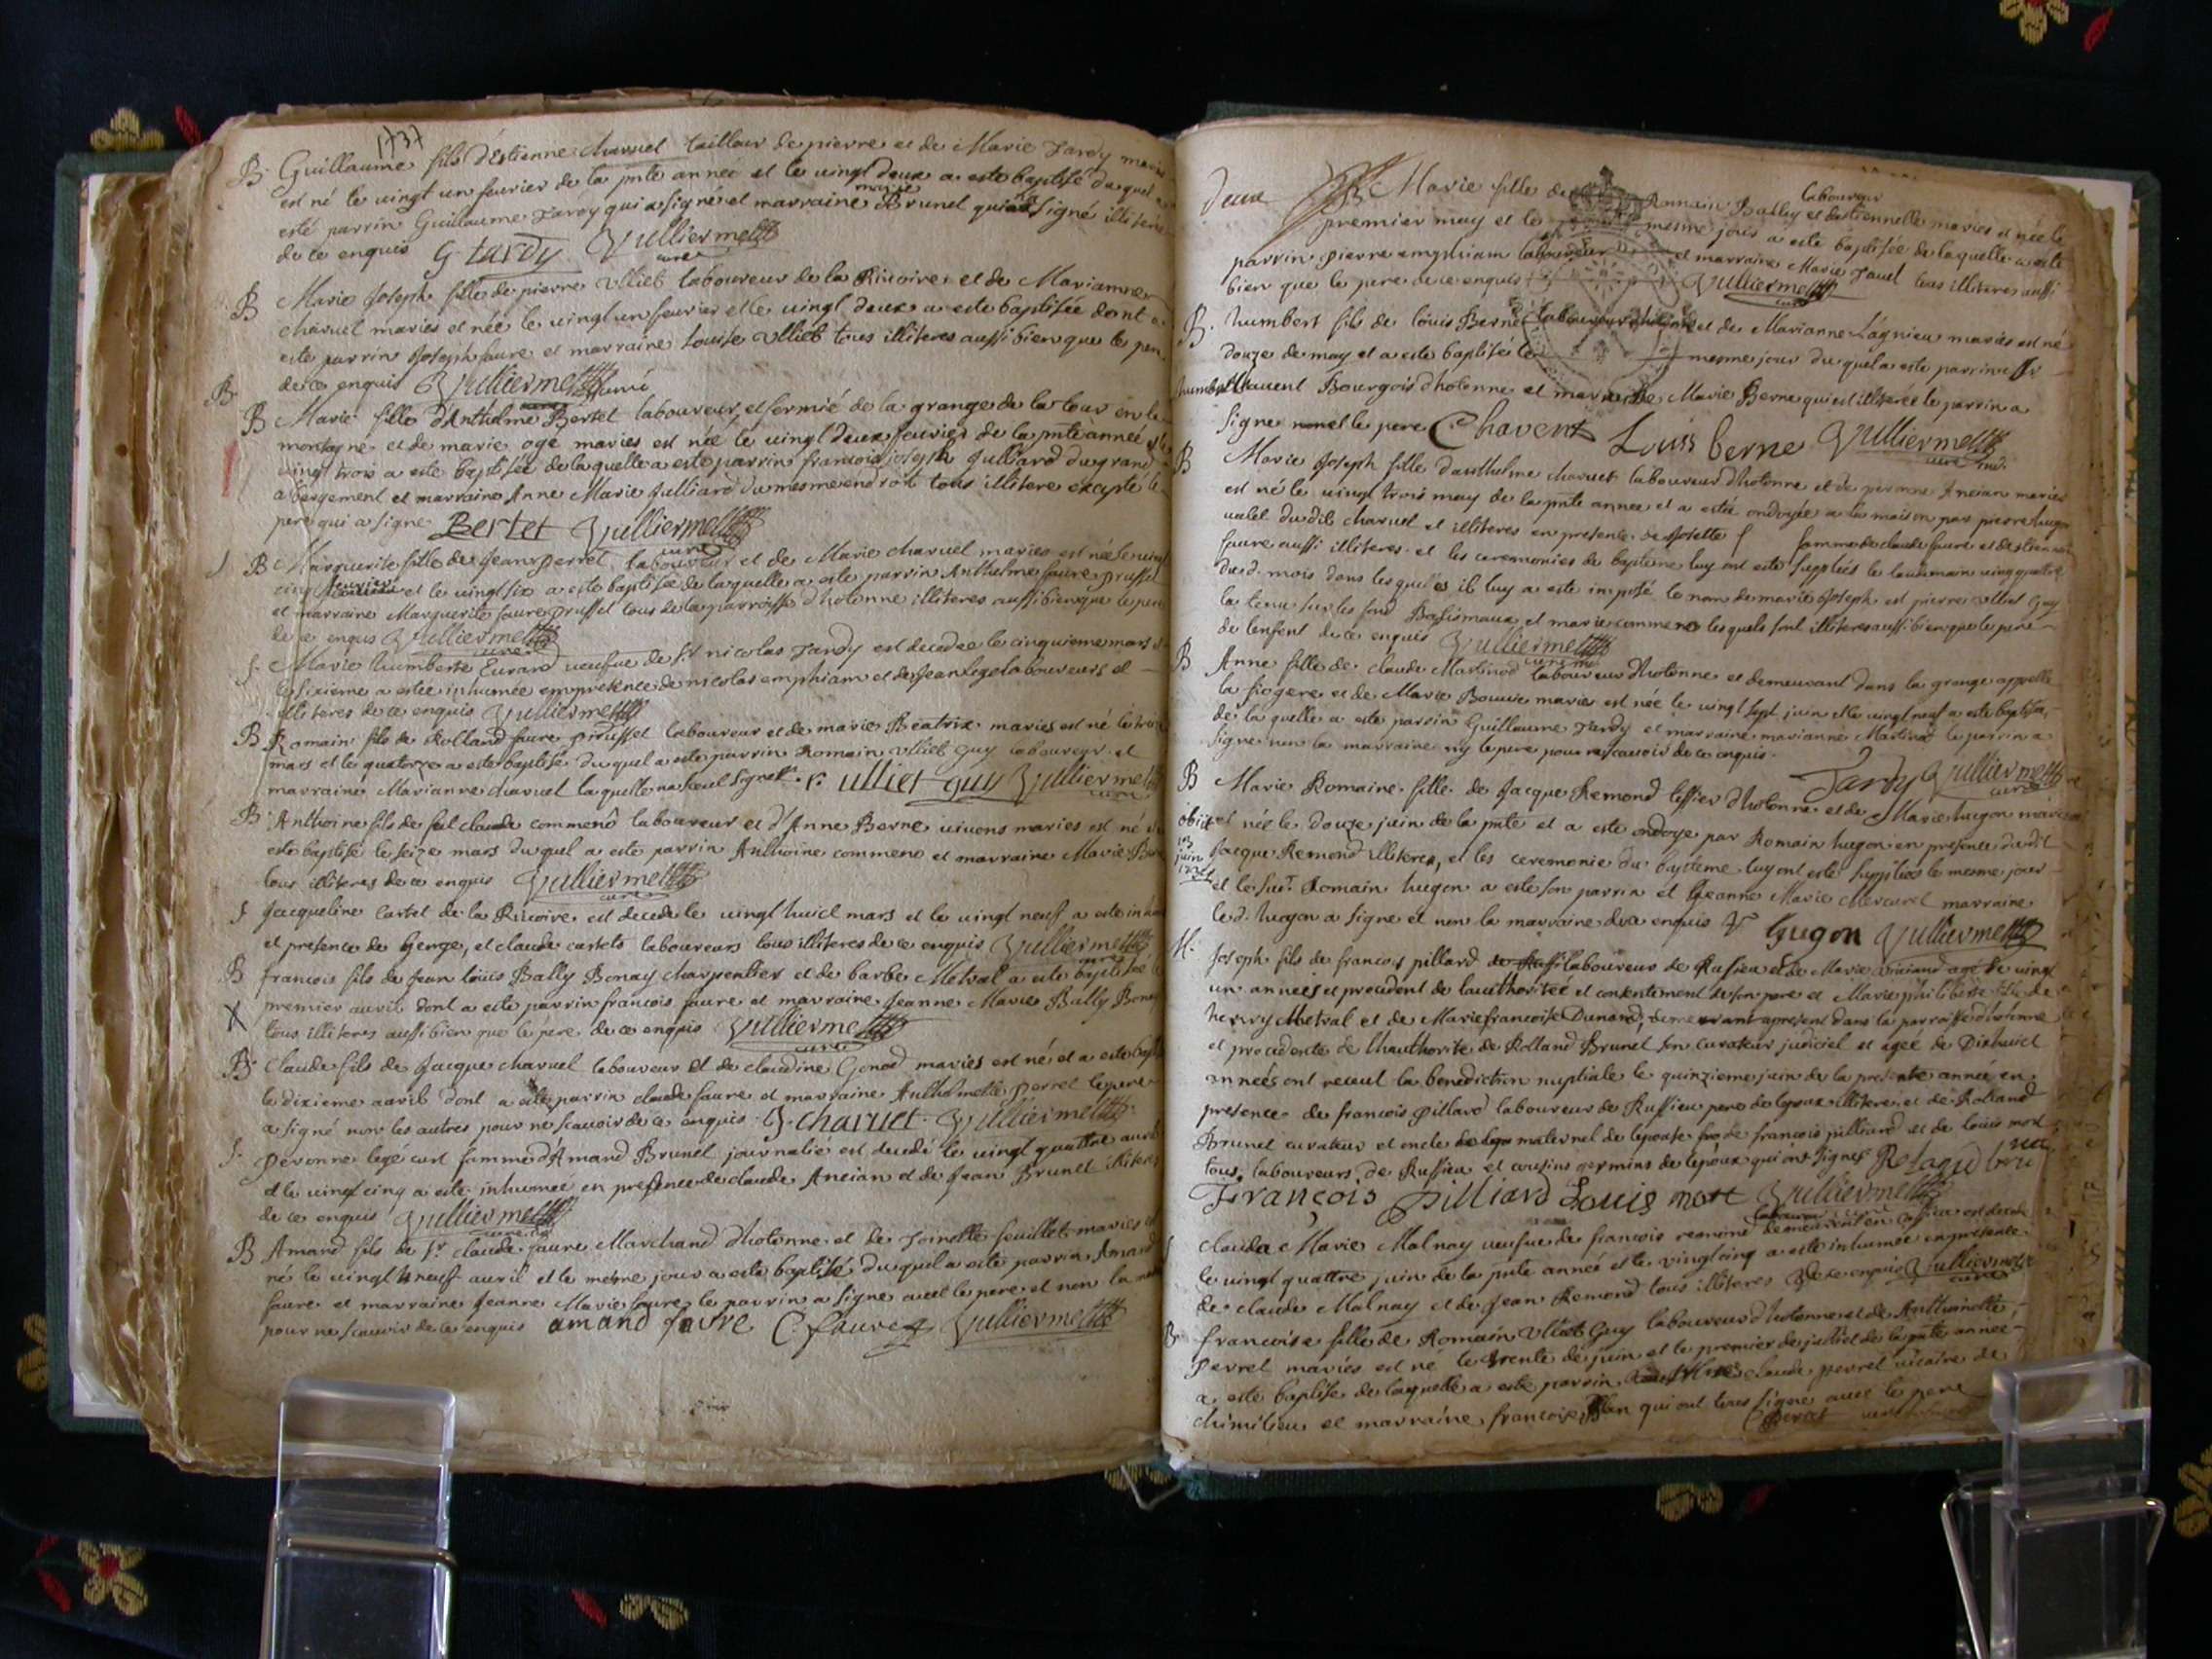 1737
B. Guillaume fils d'Estienne charvet tailleur de pierre et de Marie Tardy mariés
est né le vingt un feuvrier de la pnte année et le vingt deux a esté baptisé duquel a
esté parrin Guillaume Tardy qui a signé et marraine marie Brunel qui na signé illiterée
de ce enquis G tardy Vulliermet curé
B Marie Joseph fille de pierre Ulliet laboureur de la Rivoire et de Marianne
charvet mariés est née le vingt un feuvrier et le vingt deux a esté baptisée dont a
esté parrin Joseph faure et marraine Louise Ulliet tous illiteres aussi bien que le pere
de ce enquis Vulliermet curé
B.
B Marie fille d'Anthelme Bertet laboureur et fermié de la grange de la tour en la
montagne et de marie ogé mariés est née le vingt deux feuvrier de la pnte année et le
vingt trois a esté baptisée de laquelle a esté parrin francois joseph Julliard du grand
abergement et marraine Anne Marie Julliard du mesme endroit tous illitere excepté le
pere qui a signe Bertet Vulliermet curé
B Marguerite fille de Jean perret laboureur et de Marie charvet mariés est née le vingt
cinq feuvrier et le vingt six a esté baptisée de laquelle a esté parrin Anthelme faure prussel
et marraine Marguerite faure prussel tous de la parroisse d'hotonne illiteres aussi bien que le pere
de ce enquis Vulliermet curé
S. Marie humberte Evrard veufue de Sr nicolas Tardy est decedee le cinquieme mars et
le sixieme a estée inhumée en presence de nicolas emphiam et de Jean Legé laboureurs et
illiteres de ce enquis Vulliermet
B Romain fils de Rolland faure prussel laboureur et de marie Beatrix mariés est né le treize
mars et le quatorze a este baptisé duquel a esté parrin Romain Ulliet guy laboureur et
marraine Marianne charvet laquelle na sceut signer. r. ulliet guy Vulliermet curé
B Anthoine fils de feu claude commeno laboureur et d'Anne Berne vivons mariés est né et a
esté baptisé le seize mars duquel a esté parrin Anthoine commeno et marraine Marie Berne
tous illiteres de ce enquis Vulliermet curé
S Jacqueline Cartet de la Rivoire est decede le vingt huict mars et le vingt neuf a esté inhumée
et presence de George, et claude cartets laboureurs tous illiteres de ce enquis Vulliermet curé
B francois fils de Jean louis Bally Bonay charpentier et de barbe Metral a esté baptisé le
premier avril dont a esté parrin francois faure et marraine Jeanne Marie Bally Bonay
tous illiteres aussi bien que le pere de ce enquis Vulliermet curé
B. Claude fils de Jacque charvet laboureur et de claudine Gonod mariés est né et a esté baptisé
le dixieme avril dont a esté parrin claude faure et marraine Anthelmette perret le pere
a signé non les autres pour ne scavoir de ce enquis J. charuet. Vulliermet
S. peronne legé curt femme d'Amand Brunel journalié est decedé le vingt quattre avril
et le vingt cinq a esté inhumée en presence de claude Ancian et de Jean Brunel illiteres
de ce enquis Vulliermet curé
B Amand fils de Sr claude faure Marchand d'hotonne et de Toinette feuillet mariés est
né le vingt neuf avril et le mesme jour a esté baptisé duquel a esté parrin Amand
faure et marraine Jeanne Marie faure le parrin a signe avec le pere et non la marraine
pour ne scavoir de ce enquis amand favre C. faure Vulliermet
deux B Marie fille de Romain Bally laboureur et d'estiennette mariés est née le
premier may et le mesme jour a esté baptisée de laquelle a esté
parrin pierre emphiam laboureur et marraine Marie Tavel tous illiteres aussi
bien que le pere de ce enquis Vulliermet curé
B. humbert fils de louis Berne laboureur et de Marianne Lagnieu mariés est né
douze de may et a esté baptisé le mesme jour duquel a esté parrin Sr
humbert Chavent Bourgois d'hotonne et marraine Marie Berne qui est illiterée le parrin a
signe et le pere Chavent Louis berne Vulliermet curé
B Marie Joseph fille d'anthelme charvet laboureur d'hotonne et de peronne Ancian mariés
est né le vingt trois may de la pnte annee et a estée ondoyée a la maison par pierre hugon
valet dudit charvet et illiteres en presence de Josette femme de claude faure et d'estienne
faure aussi illiteres et les ceremonies de bapteme luy ont esté suppliés le lendemain vingt quattre
dud. mois dans lesquelles il luy a esté imposé le nom de marie Joseph et pierre Ulliet Guy
la tenu sur les fond Batismaux et marie commeno lesquels sont illiteres aussi bien que le pere
de l'enfent de ce enquis Vulliermet curé
B Anne fille de claude Martinod laboureur d'hotonne et demeurant dans la grange appellé
la fiogere et de Marie Bouvier mariés est née le vingt sept juin et le vingt neuf a esté baptisée
de laquelle a esté parrin Guillaume Tardy et marraine marianne Martinod le parrin a
signe non la marraine ny le pere pour ne scavoir de ce enquis. Tardy Vulliermet curé
B Marie Romaine fille de Jacque Remond tessier d'hotonne et de Marie hugon mariés
obiit est née le douze juin de la pnte et a esté ondoyé par Romain hugon en presence dudit
Jacque Remond illiteres, et les ceremonie du bapteme luy ont esté suppliés le mesme jour
et le susd. Romain hugon a esté son parrin et Jeanne Marie Mercuret marraine
le d. hugon a signe et non la marraine de ce enquis r hugon Vulliermet
M. Joseph fils de francois pillard laboureur de Rufieu et de Marie agé de vingt
un années et procedent de l'authoritée et consentement de son pere et Marie philiberte fille de
henry Metral et de Marie francoise Dunand, demeurant apresent dans la parroisse d'hotonne
et procedente de l'hauthorité de Rolland Brunel son curateur judiciel et agée de Dixhuict
années ont receut la benediction nuptiale le quinzieme juin de la presente année en
presence de francois pillard laboureur de Ruffieu pere de lepoux illitere et de Rolland
Brunel curateur et oncle maternel de lepouse de francois pilliard et de louis mort
tous laboureurs de Ruffieu et cousins germins de lepoux qui ont signes Roland bru
François Pilliard Louis mort Vulliermet
S Claudae Marie Malnay veufue de francois remond laboureur demeurent en est decede
le vingt quattre juin de la pnte année et le vingt cinq a esté inhumée en presence
de claude Malnay et de Jean Remond tous illiteres de ce enquis Vulliermet curé
B francoise fille de Romain Ulliet Guy laboureur d'hotonne et de Anthoinette
perret mariés est né le trente de juin et le premier de juillet de la pnte année
a esté baptise de laquelle a esté parrin claude perret vicaire de
chimilieu et marraine francoise qui ont tous signe avec le pere